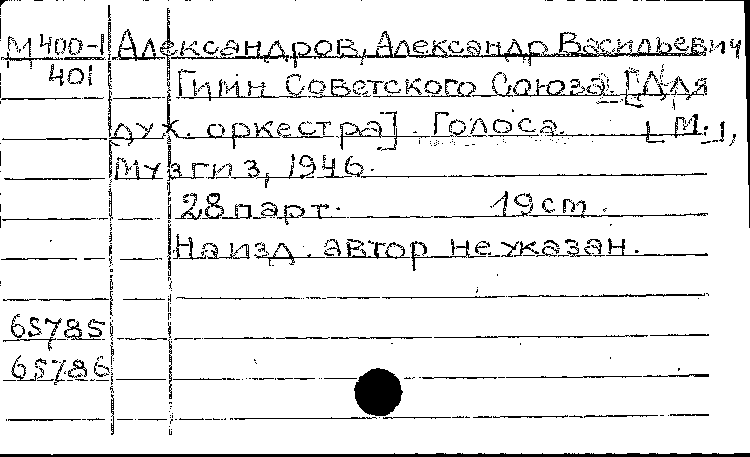 М 400-1 Александров, Александр Васильевич
401 Гимн Советского Союза. [Для
дух. оркестра]. Голоса. [М.],
Музгиз, 1946.
28 парт. 19 см.
На изд. автор не указан.
65785
65786